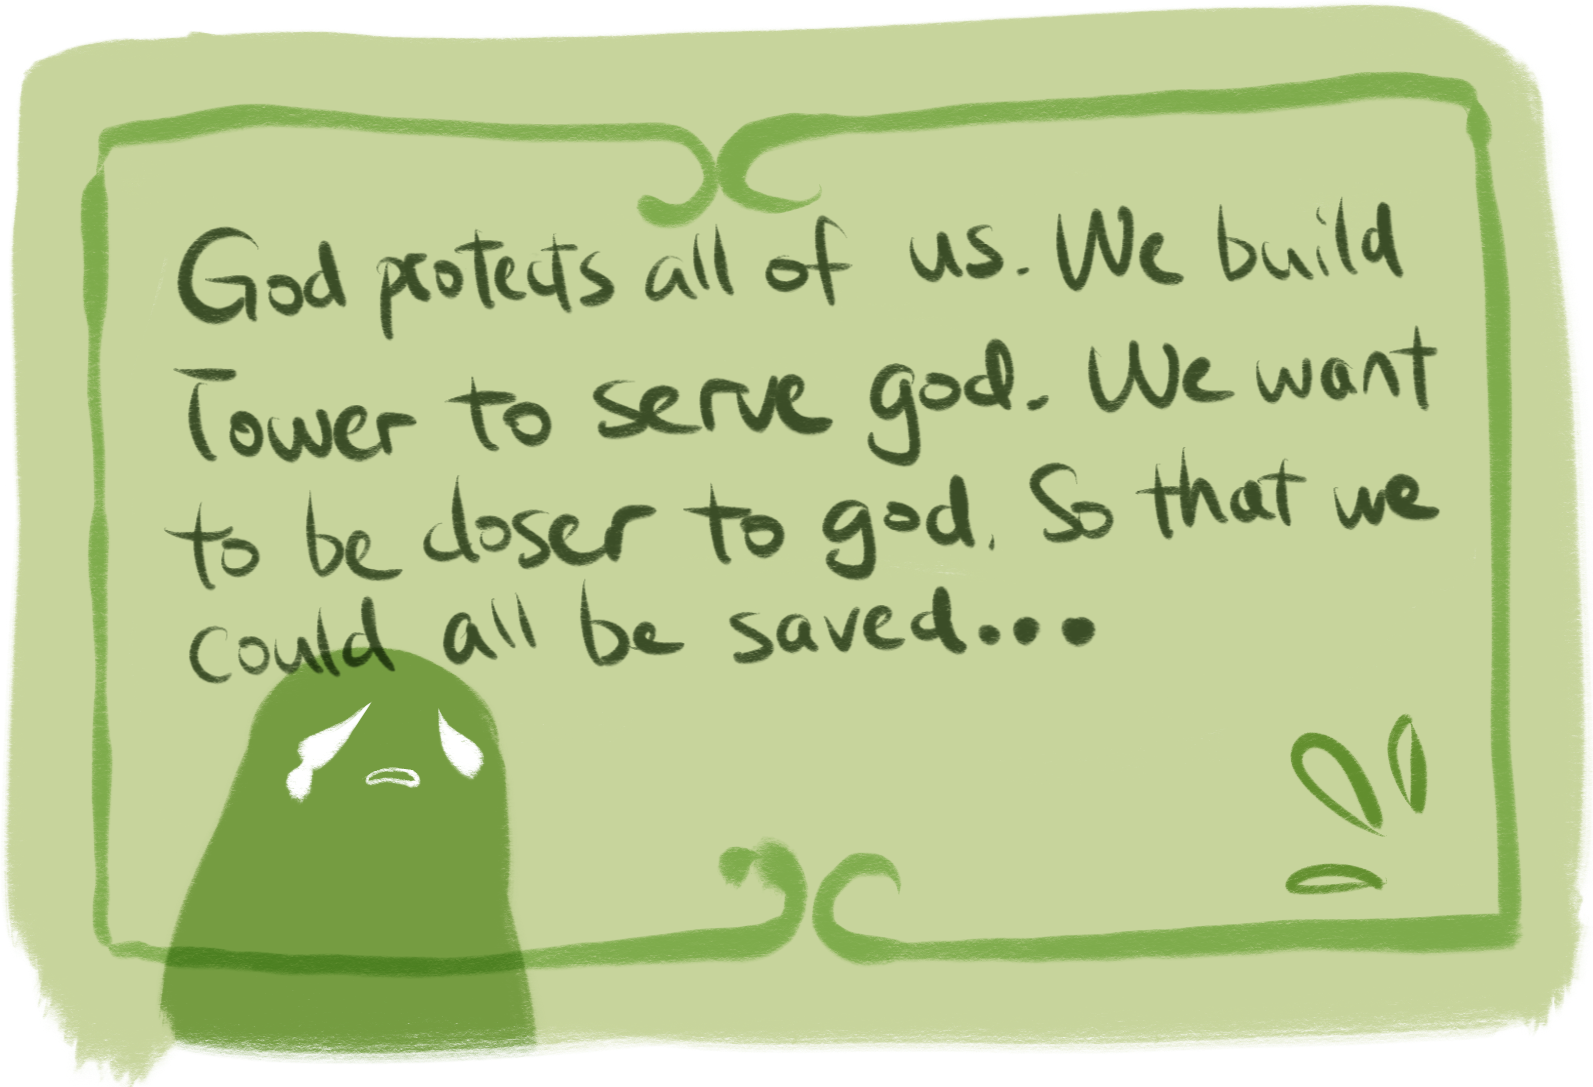 God protects all of us. We build
Tower to serve god. We want
to be closer to god. So that we
could all be saved...